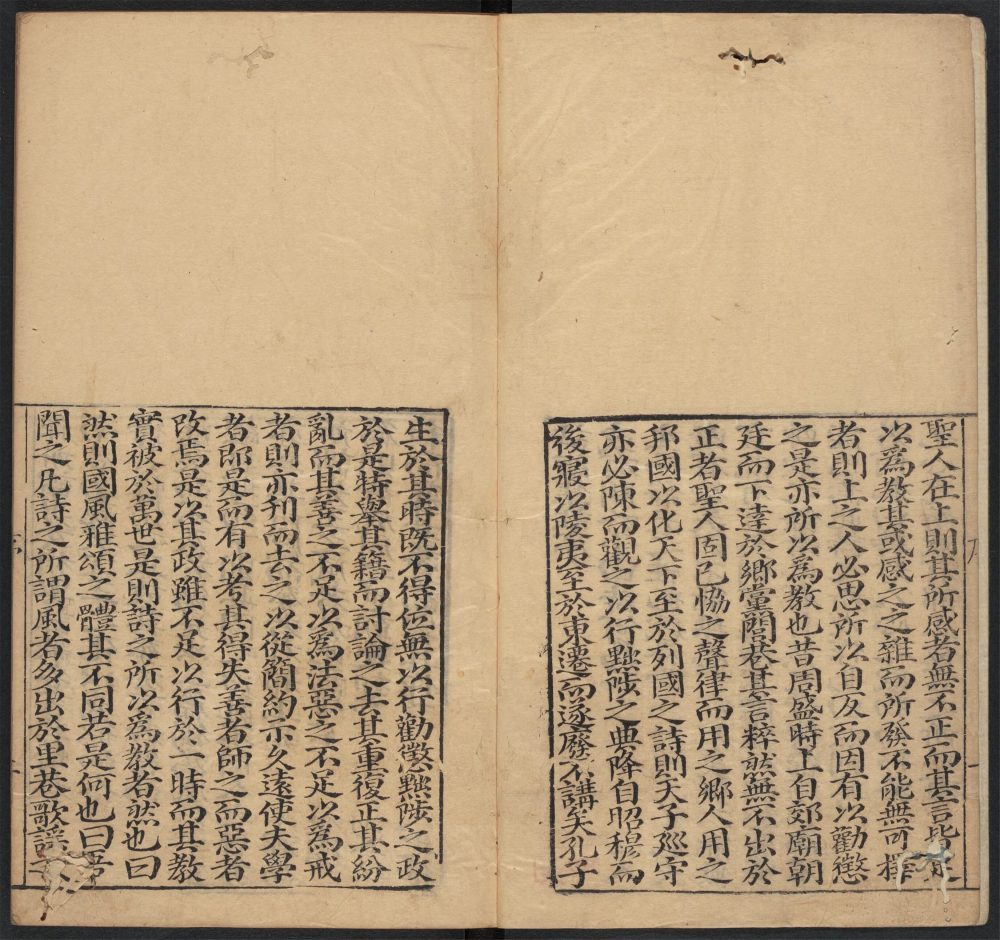 聖人在上則其所感者無不正而其言皆足
以為教其或感之之雜而所發不能無可擇
者則上之人必思所以自反而因有以勸懲
之是亦所以為教也昔周盛時上自郊廟朝
廷而下達於鄉黨閭巷其言粹然無不出於
正者聖人固已恊之聲律而用之鄉人用之
邦國以化天下至於列國之詩則天子巡守
亦必陳而觀之以行黜陟之典降自昭穆而
後寖以陵夷至於東遷而遂廢不講矣孔子
生於其時既不得位無以行勸懲黜陟之政
於是特舉其籍而討論之去其重復正其紛
亂而其善之不足以為法惡之不足以為戒
者則亦刋而去之以從簡約示久遠使夫學
者即是而有以考其得失善者師之而惡者
改焉是以其政雖不足以行於一時而其教
實被於萬世是則詩之所以為教者然也曰
然則國風雅頌之體其不同若是何也曰吾
聞之凡詩之所謂風者多出於里巷歌謡